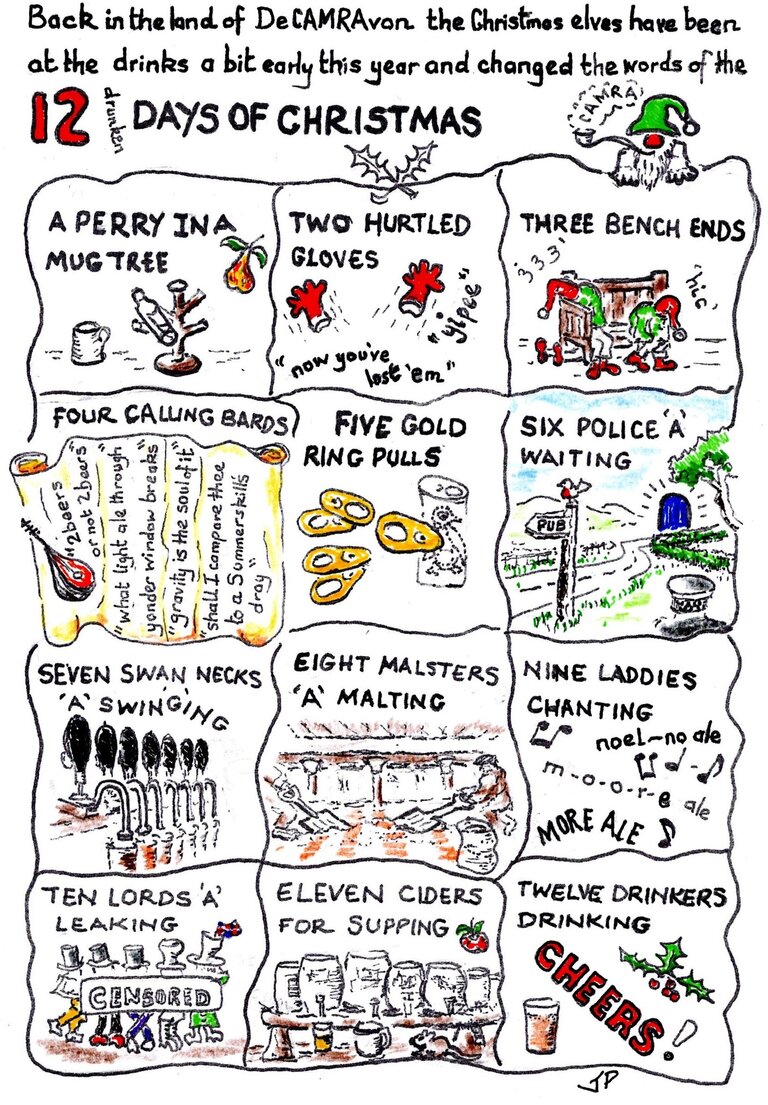 Back in the land of DeCAMRAvon the Christmas elves have been
at the drinks a bit early this year and changed the words of the
12 drunken DAYS OF CHRISTMAS
CAMRA
A PERRY IN A
MUG TREE
TWO HURTLED
GLOVES
"yipee"
"now you've
lost 'em"
THREE BENCH ENDS
'333'
'hic'
FOUR CALLING BARDS
"2beers
or not 2beers"
"what light ale through
yonder window breaks"
"gravity is the soul of it"
"shall I compare thee
to a Summerskills
dray"
FIVE GOLD
RING PULLS
SIX POLICE 'A'
WAITING
PUB
SEVEN SWAN NECKS
'A' SWING'G'ING
EIGHT MALSTERS
'A' MALTING
NINE LADDIES
CHANTING
noel~no ale
m-o-o-r-e ale
MORE ALE
TEN LORDS 'A'
LEAKING
CENSORED
ELEVEN CIDERS
FOR SUPPING
TWELVE DRINKERS
DRINKING
CHEERS!
JP